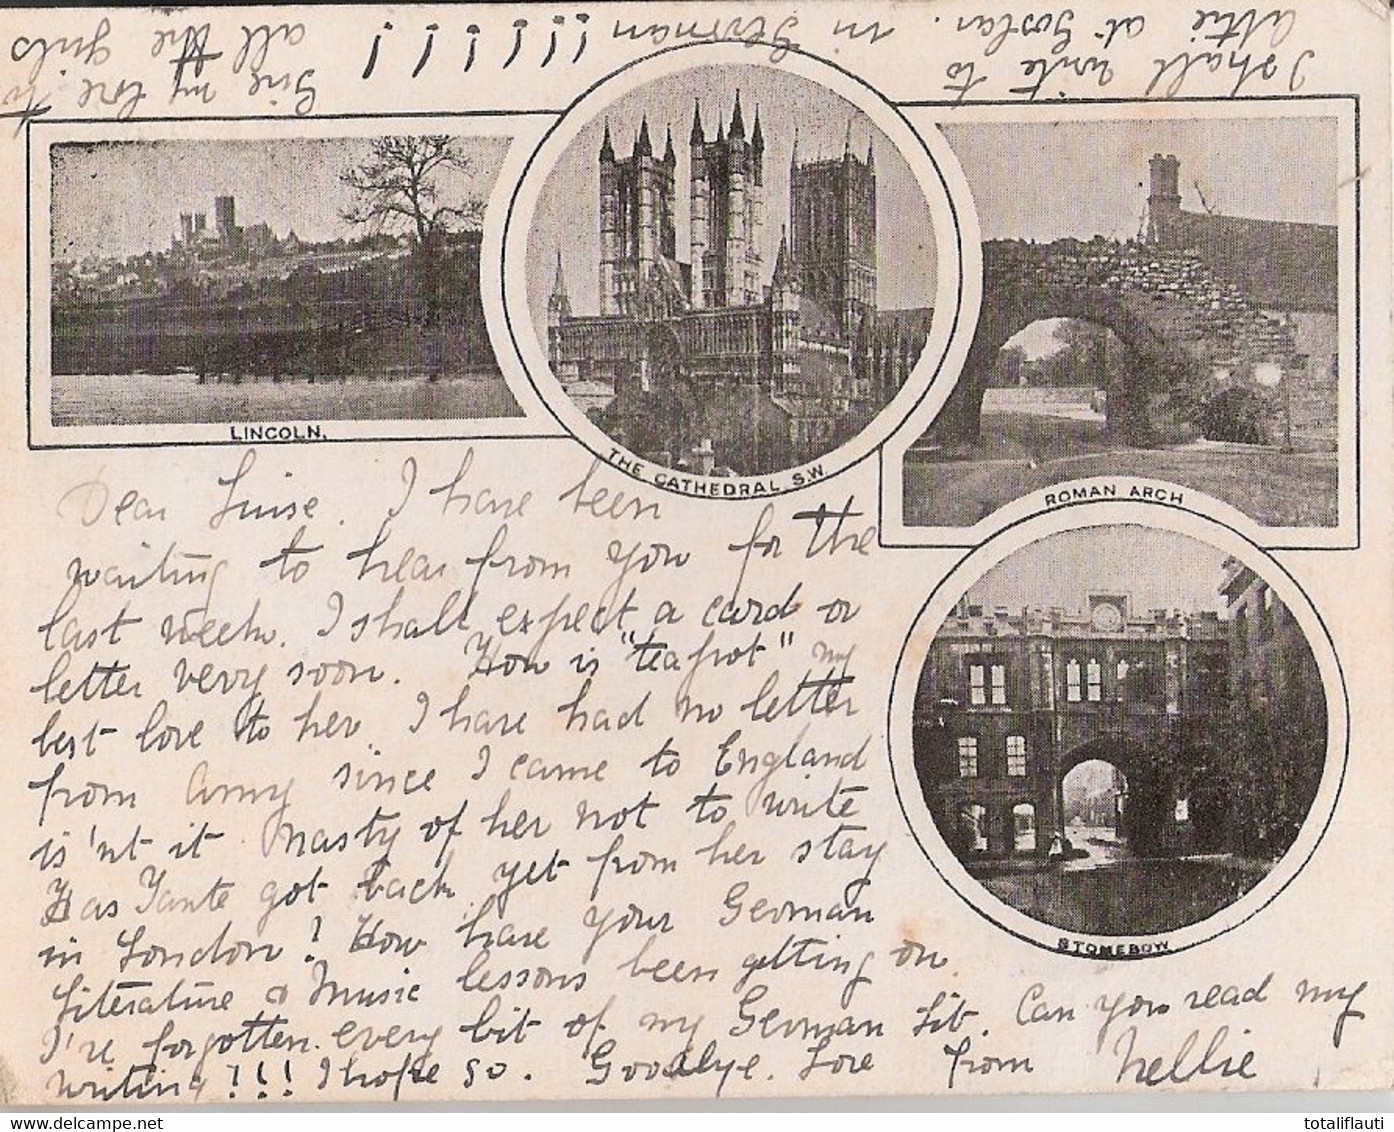 I shall write to
Attie at Goslar. in German !!!!!!!
Give my love to
all the girls
LINCOLN.
THE CATHEDRAL S.W.
ROMAN ARCH
STONEBOW
Dear Luise. I have been
waiting to hear from you for the
last week. I shall expect a card or
letter very soon. How is "teapot" my
best love to her. I have had no letter
from Amy since I came to England
is'nt it nasty of her not to write
Has Tante got back yet from her stay
in London? How have your German
Literature & Music lessons been getting on.
I've forgotten every bit of my German Lit. Can you read my
writing?!!! I hope so. Goodbye. Love from Nellie
totaliflauti